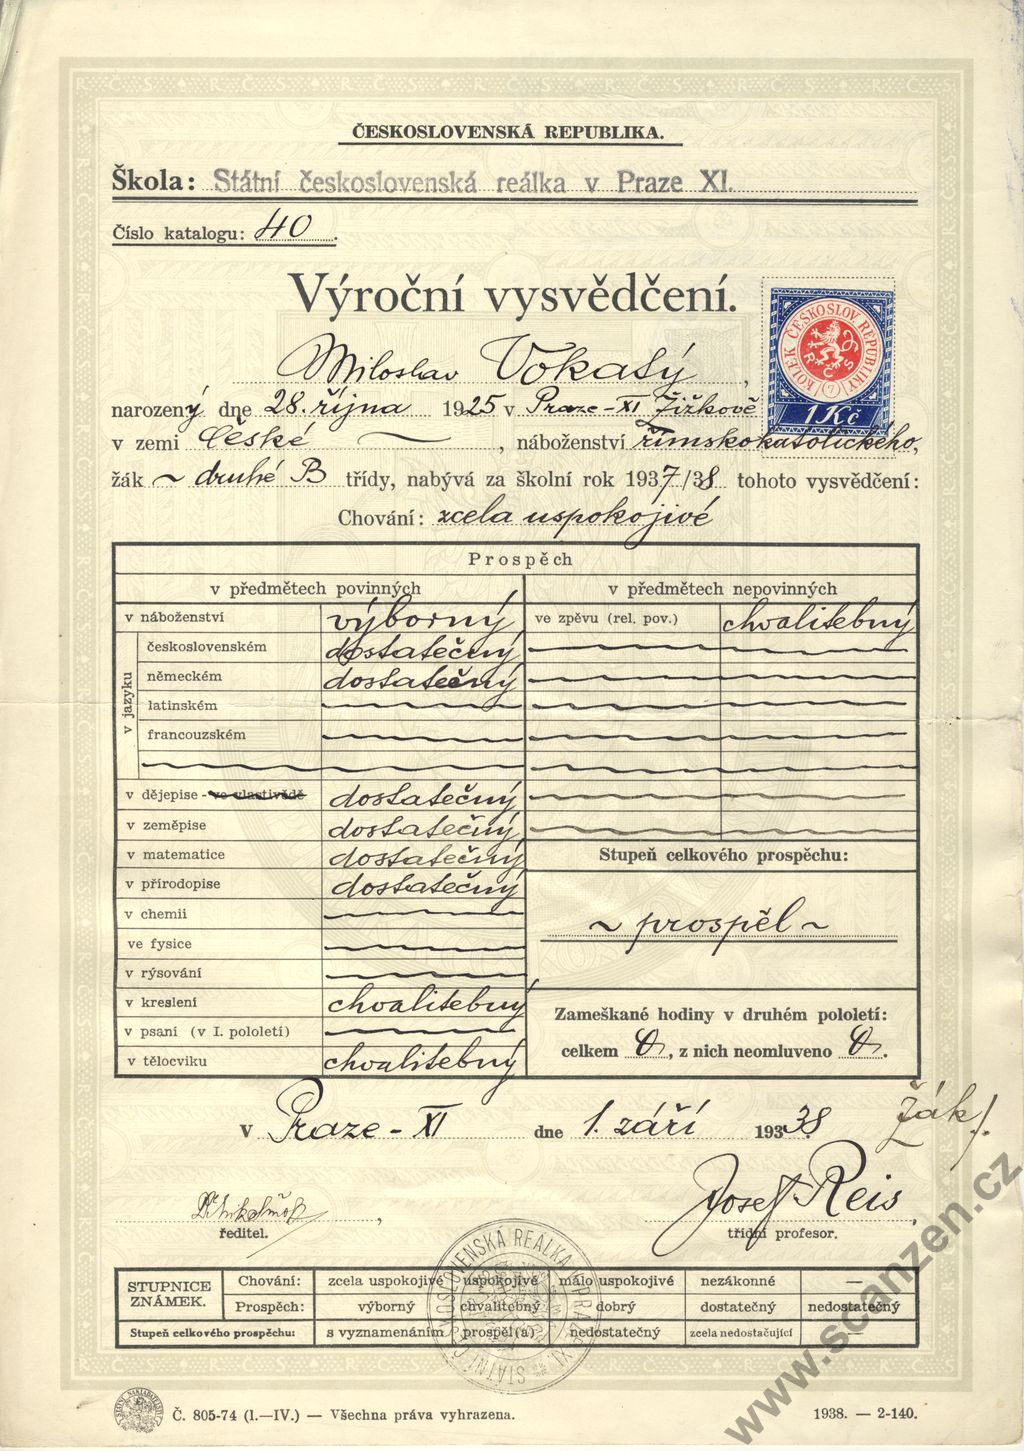 ČESKOSLOVENSKÁ REPUBLIKA.
Škola: Státní československá reálka v Praze XI.
Číslo katalogu: 40.
Výroční vysvědčení.
KOLEK ČESKOSLOV. REPUBLIKY
RČS
1 Kč
Miloslav Vokatý,
narozený dne 28. října 1925 v Praze-XI Žižkově
v zemi České, náboženství římskokatolického,
žák ~ druhé B třídy, nabývá za školní rok 1937/38 tohoto vysvědčení:
Chování: zcela uspokojivé
Prospěch
v předmětech povinných v předmětech nepovinných
v náboženství výborný ve zpěvu (rel. pov.) chvalitebný
v jazyku
československém dostatečný
německém dostatečný
latinském
francouzském
v dějepise - ve vlastivědě dostatečný
v zeměpise dostatečný
v matematice dostatečný Stupeň celkového prospěchu:
v přírodopise dostatečný
v chemii ~ prospěl ~
ve fysice
v rýsování
v kreslení chvalitebný Zameškané hodiny v druhém pololetí:
v psaní (v I. pololetí) celkem 0, z nich neomluveno 0.
v tělocviku chvalitebný
v Praze-XI dne 1. září 1938 Žák!
Josef Reis,
ředitel. třídní profesor.
STÁTNÍ ČESKOSLOVENSKÁ REÁLKA V PRAZE XI.
STUPNICE ZNÁMEK. Chování: zcela uspokojivé uspokojivé málo uspokojivé nezákonné —
Prospěch: výborný chvalitebný dobrý dostatečný nedostatečný
Stupeň celkového prospěchu: s vyznamenáním prospěl(a) nedostatečný zcela nedostačující
Č. 805-74 (I.—IV.) — Všechna práva vyhrazena. 1938. — 2-140.
www.scanzen.cz